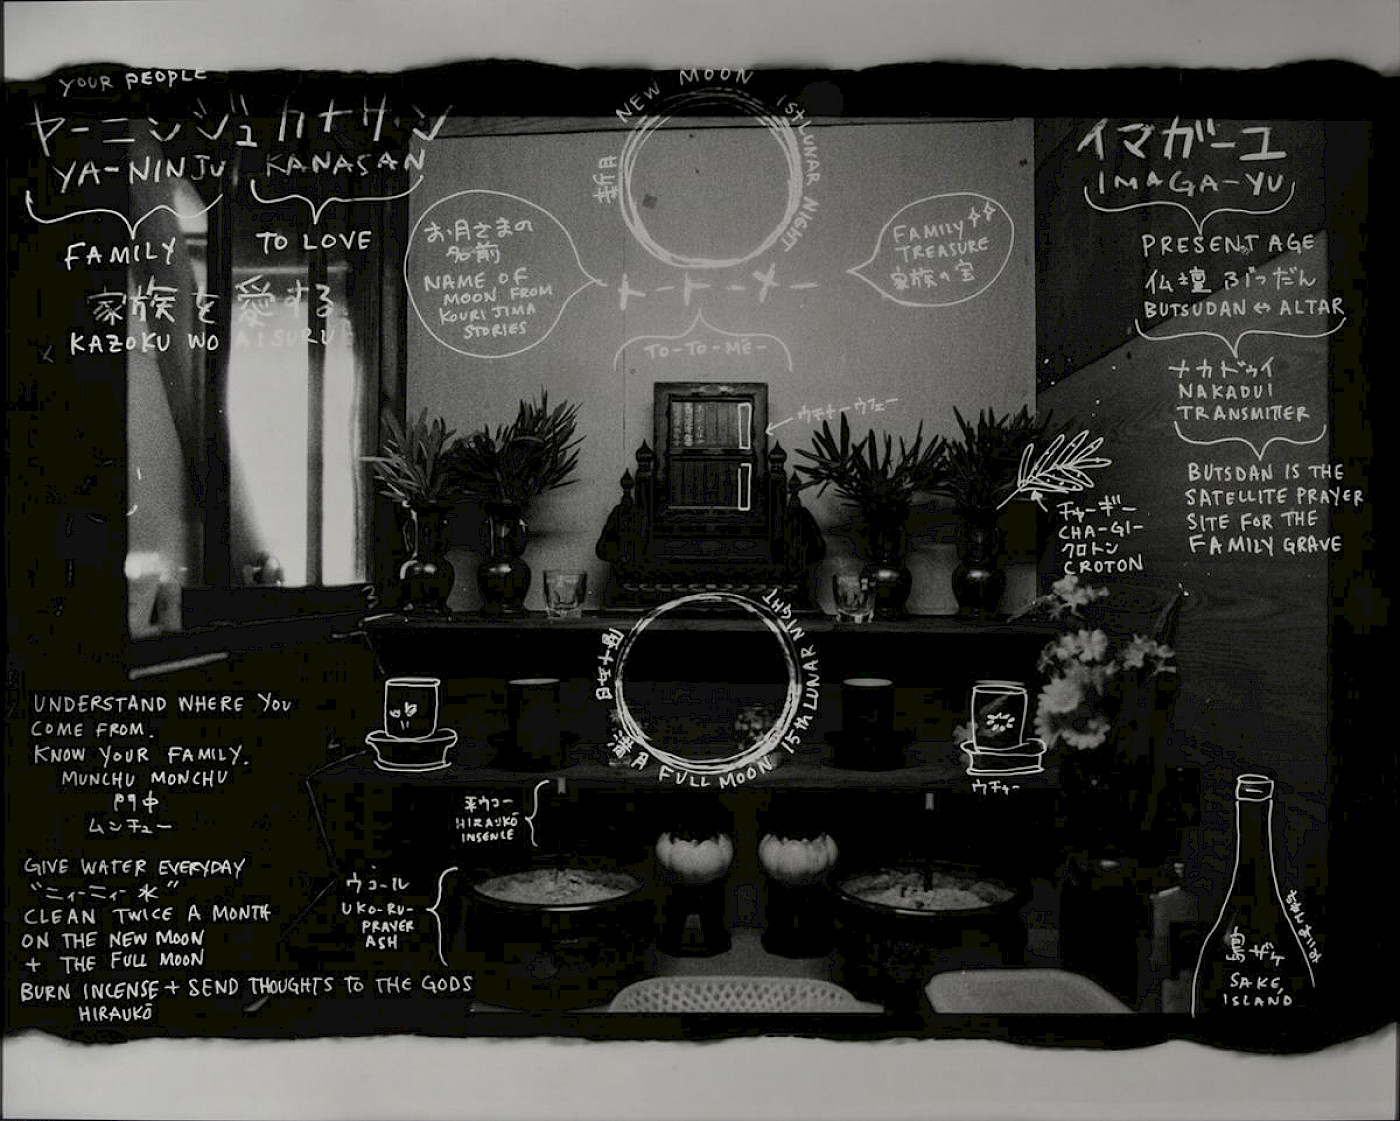 YOUR PEOPLE
ヤーニンジュ カナサン
YA-NINJU KANASAN
FAMILY
TO LOVE
家族を 愛する
KAZOKU WO AISURU
お月さまの
名前
NAME OF
MOON FROM
KOURI JIMA
STORIES
NEW MOON
1st LUNAR NIGHT
トートーメー
TO-TO-ME-
FAMILY
TREASURE
家族の宝
イマガーユ
IMAGA-YU
PRESENT AGE
仏壇 ぶつだん
BUTSUDAN ↔ ALTAR
ナカドゥイ
NAKADUI
TRANSMITTER
BUTSDAN IS THE
SATELLITE PRAYER
SITE FOR THE
FAMILY GRAVE
チャーギー
CHA-GI-
クロトン
CROTON
15th LUNAR NIGHT
満月 FULL MOON
UNDERSTAND WHERE YOU
COME FROM.
KNOW YOUR FAMILY.
MUNCHU MONCHU
門中
ムンチュー
GIVE WATER EVERYDAY
CLEAN TWICE A MONTH
ON THE NEW MOON
+ THE FULL MOON
BURN INCENSE + SEND THOUGHTS TO THE GODS
HIRAUKŌ
平ウコー
HIRAUKŌ
INSENCE
ウコール
UKO-RU-
PRAYER
ASH
ウチャー
島ザケ
SAKE,
ISLAND